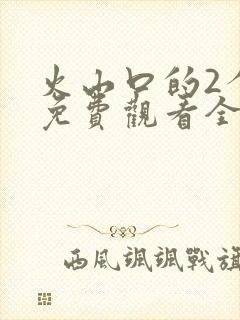 火山口的2
免費觀看全
西風颯颯戰旗